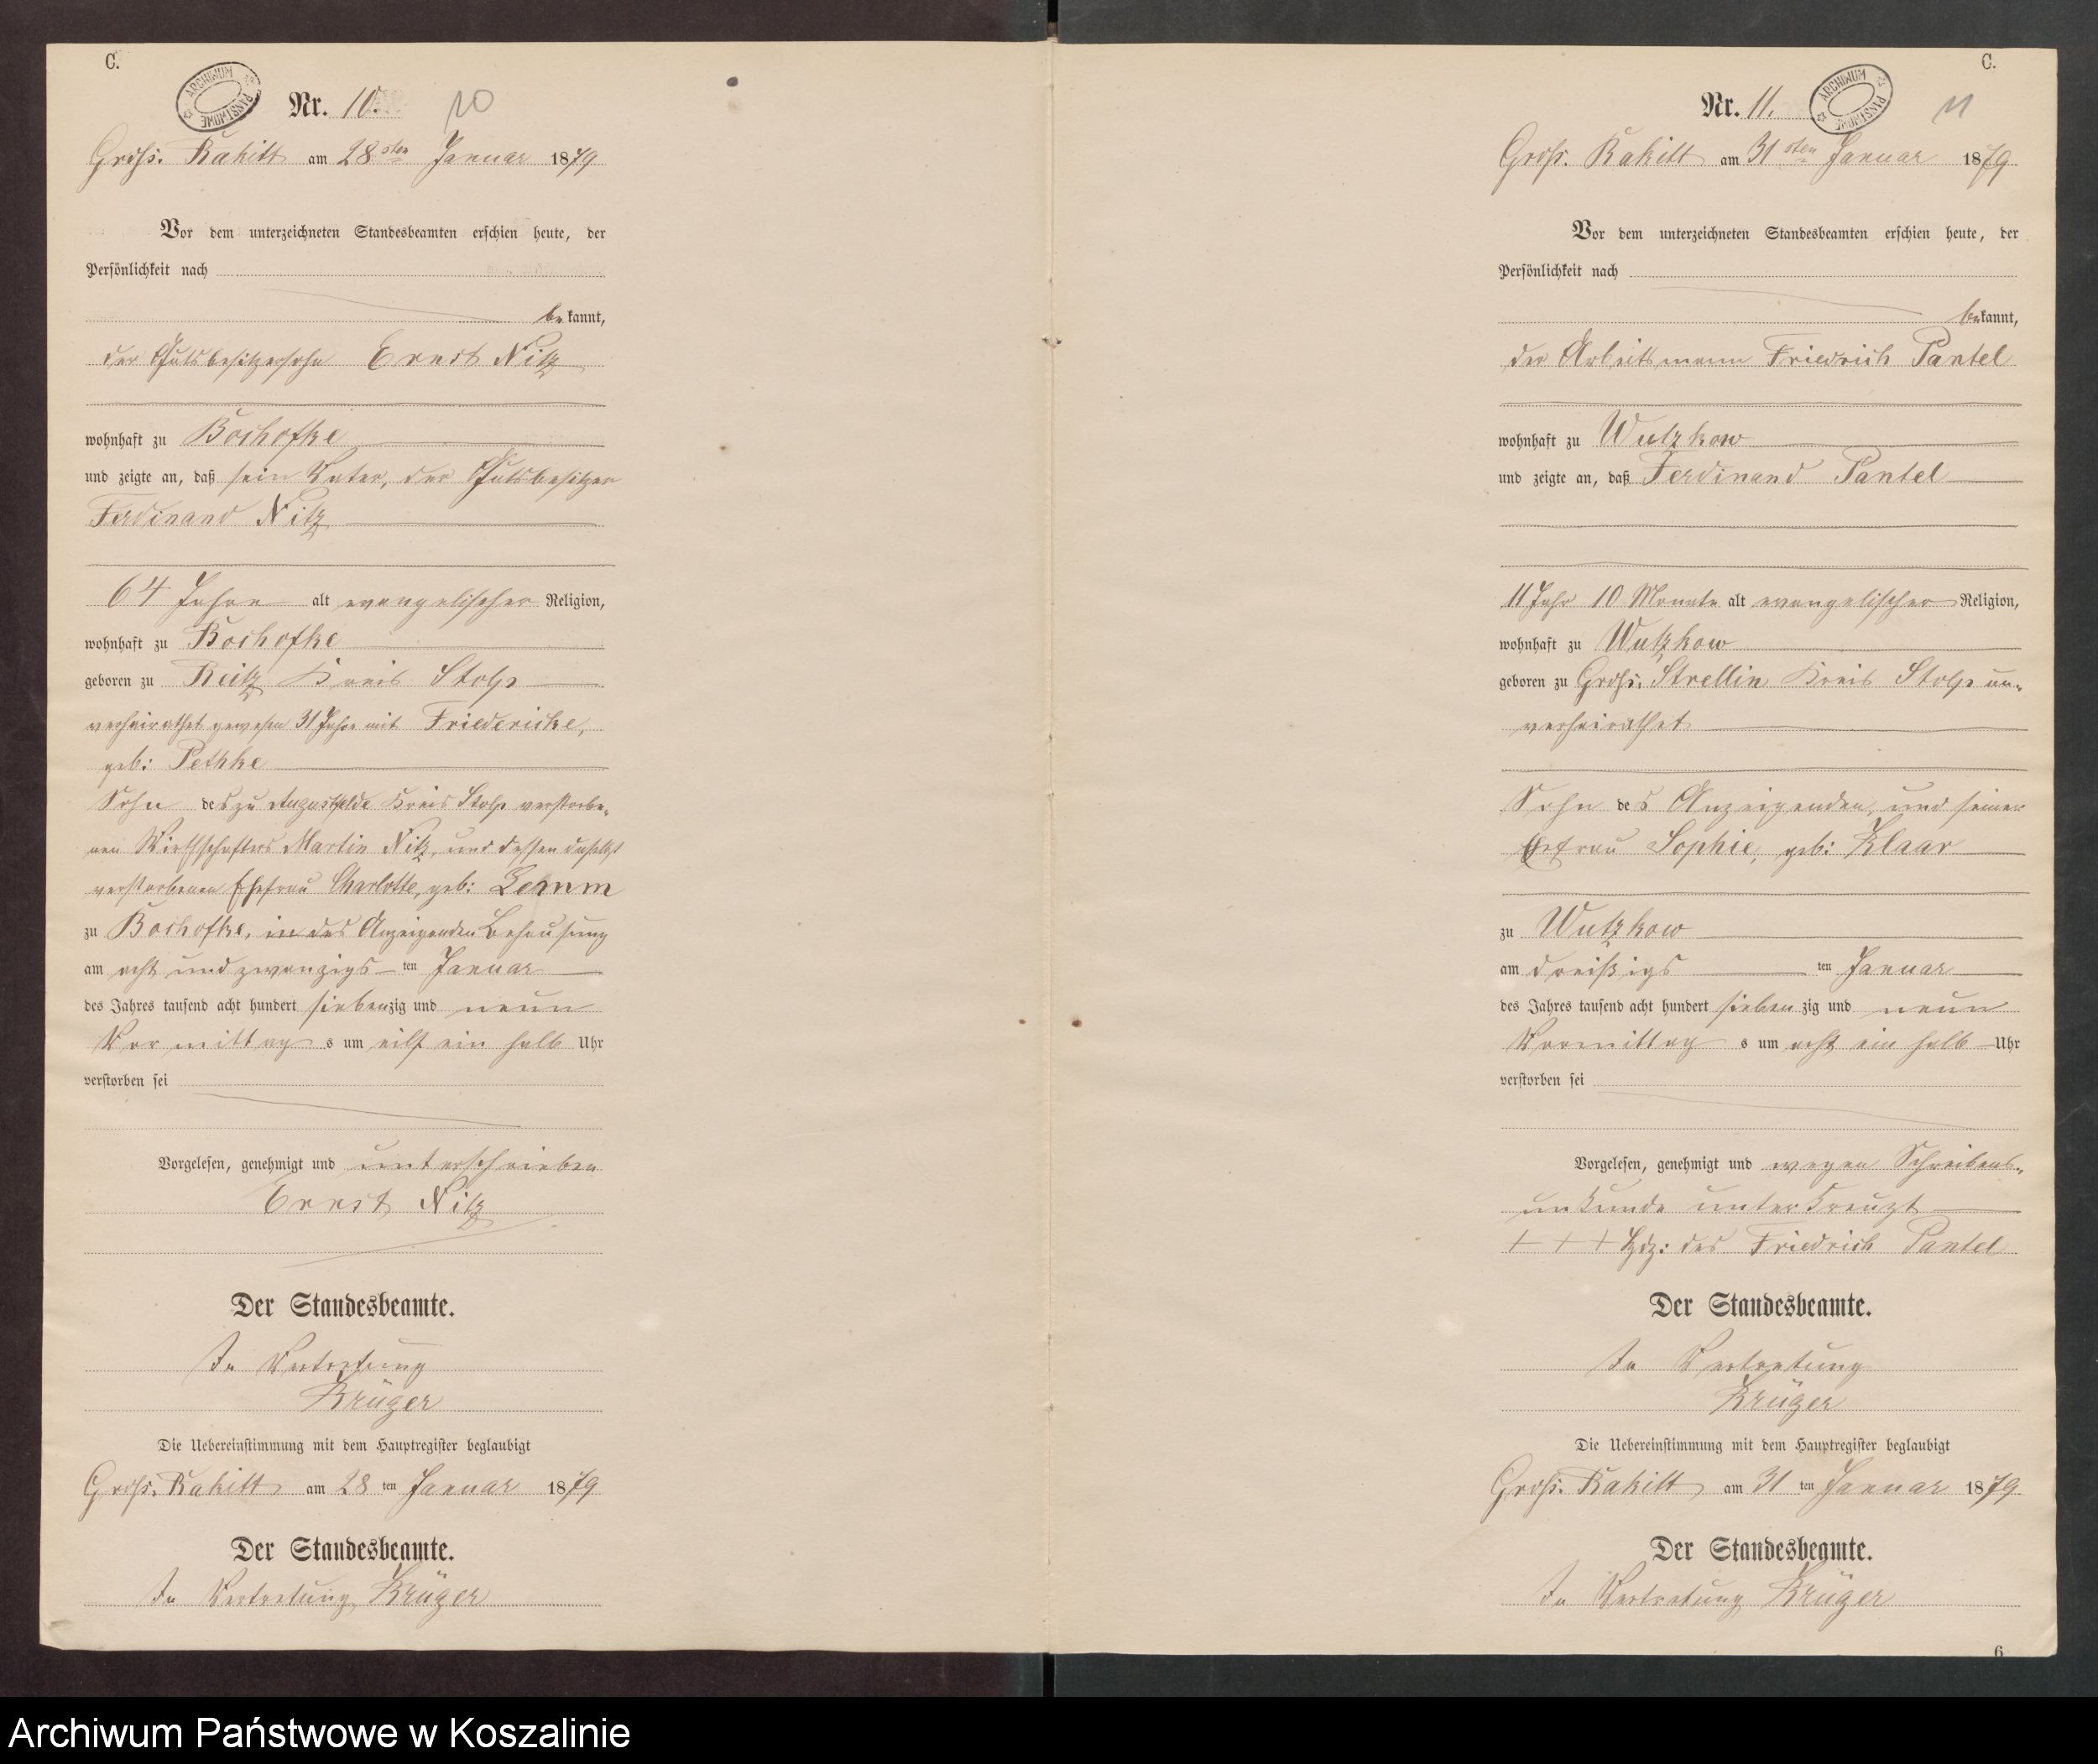 C.
ARCHIWUM PAŃSTWOWE
Nr. 10.
10
Groß. Rakitt am 28sten Januar 1879
Vor dem unterzeichneten Standesbeamten erschien heute, der
Persönlichkeit nach
bekannt,
der Gutsbesitzersohn Ernst Nitz
wohnhaft zu Bochofke
und zeigte an, daß sein Vater, der Gutsbesitzer
Ferdinand Nitz
64 Jahre alt evangelischer Religion,
wohnhaft zu Bochofke
geboren zu Reitz Kreis Stolp
verheirathet gewesen 31 Jahre mit Friedericke,
geb: Pethke
Sohn des zu Augustfelde Kreis Stolp verstorbe-
nen Wirthschafters Martin Nitz, und dessen daselbst
verstorbenen Ehefrau Charlotte, geb: Lemm
zu Bochofke, in des Anzeigenden Behausung
am acht und zwanzigsten Januar
des Jahres tausend acht hundert siebenzig und neun
Vormittags um eilf ein halb Uhr
verstorben sei
Vorgelesen, genehmigt und unterschrieben
Ernst Nitz
Der Standesbeamte.
In Vertretung
Krüger
Die Uebereinstimmung mit dem Hauptregister beglaubigt
Groß. Rakitt am 28ten Januar 1879
Der Standesbeamte.
In Vertretung Krüger
C.
Nr. 11.
ARCHIWUM PAŃSTWOWE
11
Groß. Rakitt am 31sten Januar 1879
Vor dem unterzeichneten Standesbeamten erschien heute, der
Persönlichkeit nach
bekannt,
der Arbeitsmann Friedrich Pantel
wohnhaft zu Wutzkow
und zeigte an, daß Ferdinand Pantel
11 Jahr 10 Monate alt evangelischer Religion,
wohnhaft zu Wutzkow
geboren zu Groß. Strellin Kreis Stolp un-
verheirathet
Sohn des Anzeigenden, und seiner
Ehefrau Sophie, geb: Klaar
zu Wutzkow
am dreißigsten Januar
des Jahres tausend acht hundert siebenzig und neun
Vormittags um acht ein halb Uhr
verstorben sei
Vorgelesen, genehmigt und wegen Schreibens-
unkunde unterkreuzt
+ + + Hdz: des Friedrich Pantel
Der Standesbeamte.
In Vertretung
Krüger
Die Uebereinstimmung mit dem Hauptregister beglaubigt
Groß. Rakitt am 31ten Januar 1879
Der Standesbeamte.
In Vertretung Krüger
6
Archiwum Państwowe w Koszalinie